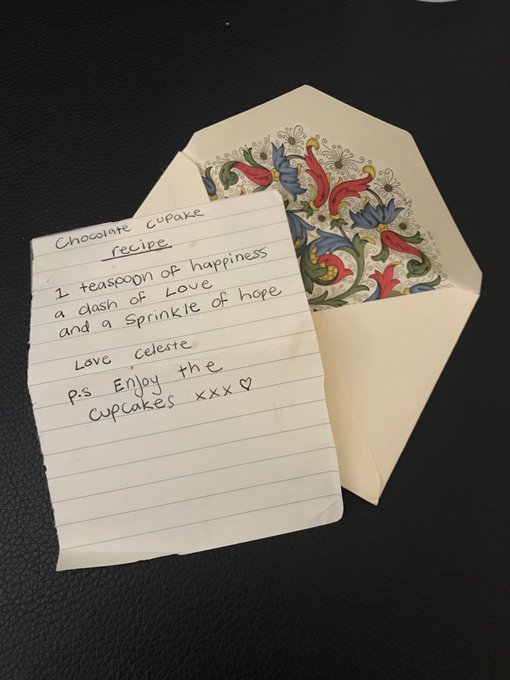 Chocolate cupake
recipe
1 teaspoon of happiness
a dash of Love
and a sprinkle of hope
Love Celeste
p.s Enjoy the
cupcakes xxx♡